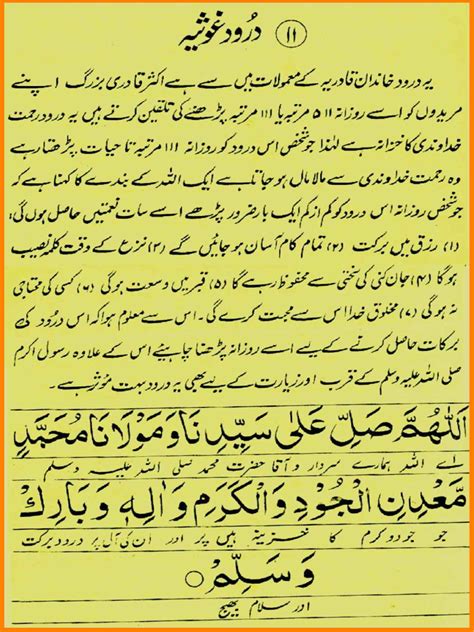 ۱۱ درود غوثیہ
یہ درود خاندان قادریہ کے معمولات میں سے ہے اکثر قادری بزرگ اپنے
مریدوں کو اسے روزانہ ۵۱۱ مرتبہ یا ۱۱۱ مرتبہ پڑھنے کی تلقین کرتے ہیں یہ درود رحمت
خداوندی کا خزانہ ہے لہٰذا جو شخص اس درود کو روزانہ ۱۱۱ مرتبہ تا حیات پڑھتا رہے
وہ رحمت خداوندی سے مالا مال ہو جاتا ہے ایک اللہ کے بندے کا کہنا ہے کہ
جو شخص روزانہ اس درود کو کم از کم ایک بار ضرور پڑھے اسے سات نعمتیں حاصل ہوں گی؛
(۱) رزق میں برکت (۲) تمام کام آسان ہو جائیں گے (۳) نزع کے وقت کلمہ نصیب
ہوگا (۴) جان کنی کی سختی سے محفوظ رہے گا (۵) قبر میں وسعت ہوگی (۶) کسی کی محتاجی
نہ ہوگی (۷) مخلوق خدا اس سے محبت کرے گی۔ اس سے معلوم ہوا کہ اس درود کی
برکات حاصل کرنے کے لیے اسے روزانہ پڑھنا چاہیئے اس کے علاوہ رسول اکرم
صلی اللہ علیہ وسلم کے قرب اور زیارت کے لیے بھی یہ درود بہت موثر ہے۔
اَللّٰهُمَّ صَلِّ عَلٰى سَيِّدِنَا وَمَوْلَانَا مُحَمَّدٍ
اے اللہ ہمارے سردار و آقا حضرت محمد صلی اللہ علیہ وسلم
مَّعْدِنِ الْجُوْدِ وَالْكَرَمِ وَاٰلِهٖ وَبَارِكْ
جو جود و کرم کا خزینہ ہیں پر اور ان کی آل پر درود برکت
وَسَلِّمْ ○
اور سلام بھیج